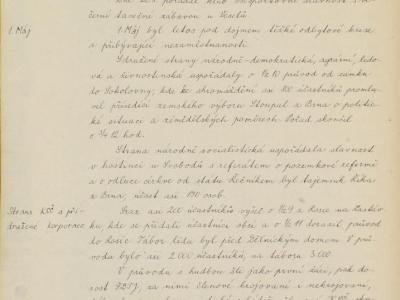 černí taneční zábavou u Veselů
1. Máj
1. Máj byl letos pod dojmem těžké odbytové krise
a přibývající nezaměstnanosti.
Sdružené strany národně-demokratická, agrární, lido-
vá a živnostenská uspořádaly o ½ 10 průvod od zámku
do Sokolovny, kde ke shromáždění asi 100 účastníků promlu-
vil přísedící zemského výboru Stoupal z Brna o politic-
ké situaci a zemědělských poměrech. Pořad skončil
o ¼ 12 hod.
Strana národně socialistická uspořádala slavnost
v hostinci u Svobodů s referátem o pozemkové reformě
a o odluce církve od státu. Řečníkem byl tajemník
z Brna, účast asi 190 osob.
Strana KSČ a při-
družené korporace
Sraz asi 200 účastníků vyšel o ½ 9 z Rosic na Zastáv-
ku, kde se přidali účastníci obcí a o ½ 11 dorazil průvod
do Rosic. Tábor lidu byl před Dělnickým domem. V prů-
vodu bylo asi 2.000 účastníků, na táboru 3.000.
V průvodu s hudbou šli jako první žáci, pak do-
rost RDTJ, za nimi členové krojovaní i nekrojovaní,